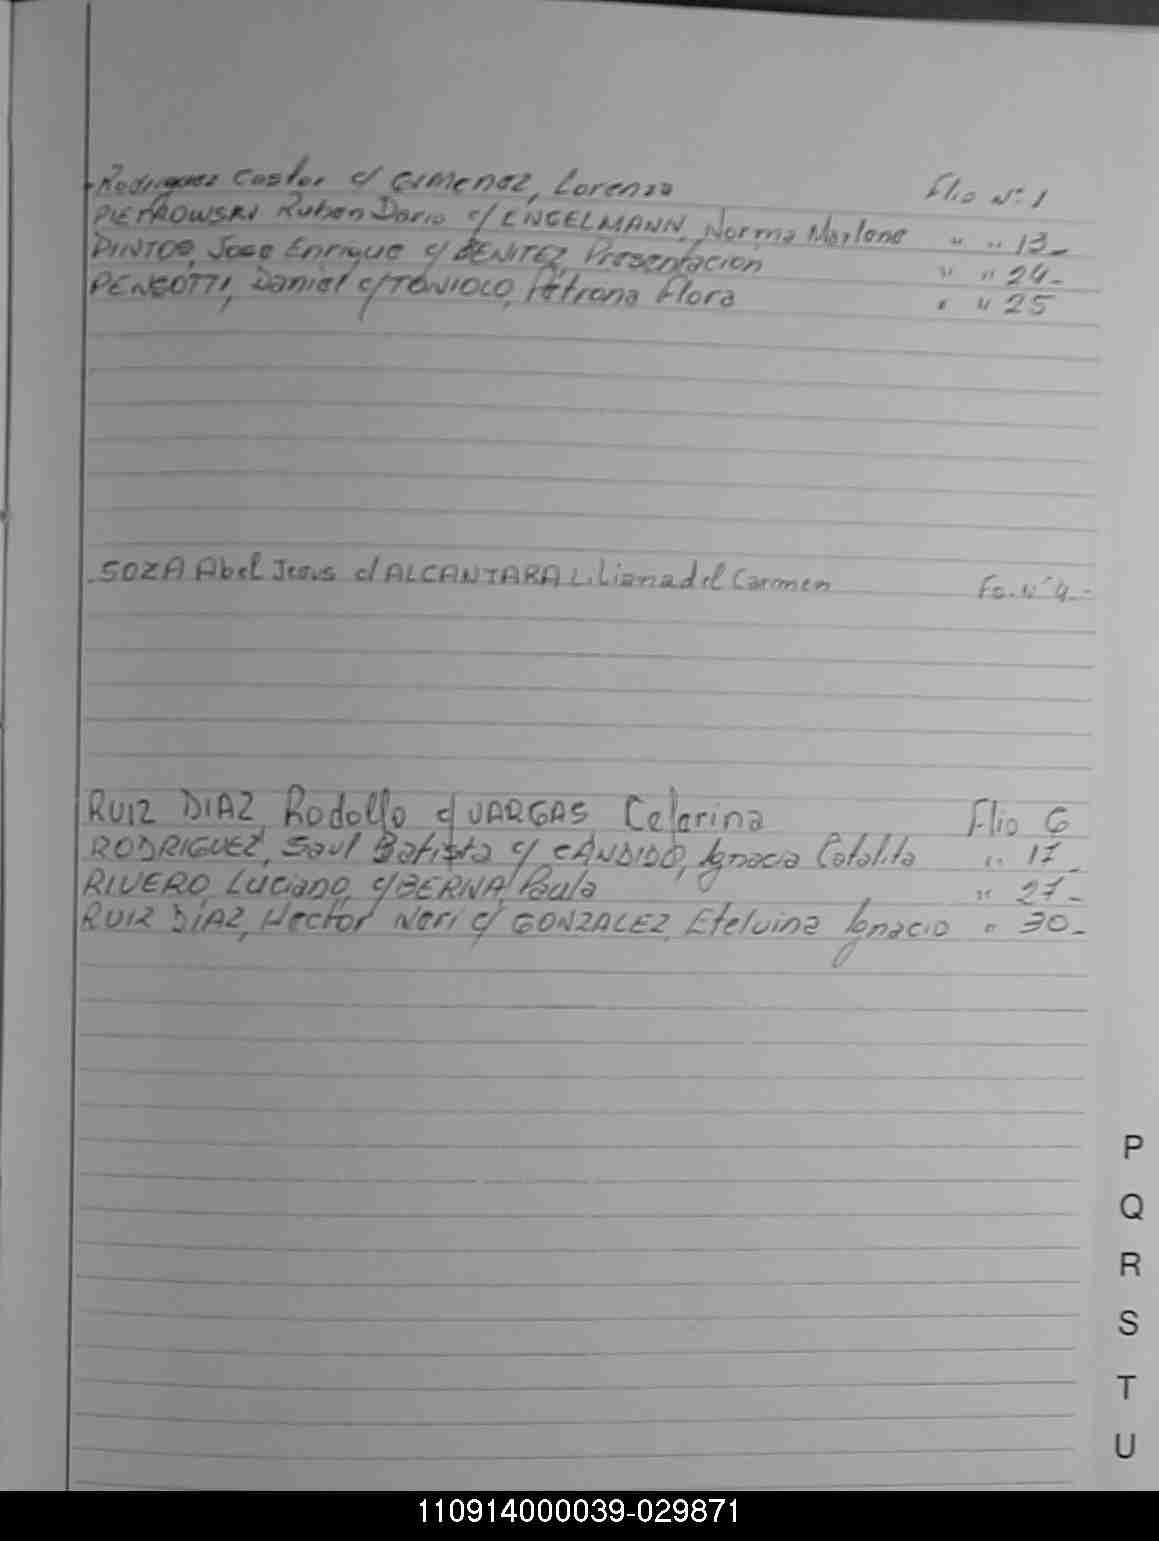 Rodriguez Castor c/ GIMENEZ, Lorenza Flio N° 1
PIETROWSKI Ruben Dario c/ ENGELMANN, Norma Marlene " " 13_
PINTOS, Jose Enrique c/ BENITEZ, Presentacion " " 24_
PENSOTTI, Daniel c/ TONIOLO, Petrona Flora " " 25
SOZA Abel Jesus c/ ALCANTARA Liliana del Carmen Fo. N° 4.-
RUIZ DIAZ Rodolfo c/ VARGAS Ceferina Flio 6
RODRIGUEZ, Saul Batista c/ CANDIDO, Ignacia Catalita " 17_
RIVERO, Luciano, c/ BERNA, Paula " 27_
RUIZ DIAZ, Hector Neri c/ GONZALEZ, Etelvina Ignacio " 30_
P
Q
R
S
T
U
110914000039-029871